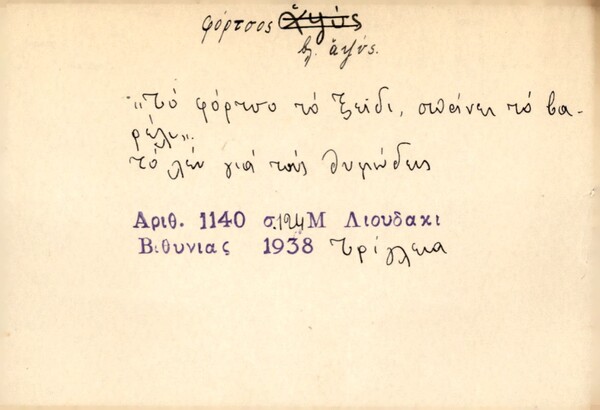 φόρτσος
βλ. ἀψύς.
"Τό φόρτσο τό ξείδι, σπάνει τό βα-
ρέλι".
τό λέν γιά τούς θυμώδεις
Αριθ. 1140 σ. 124 Μ Λιουδακι
Βιθυνιας 1938 Τρίγλεια